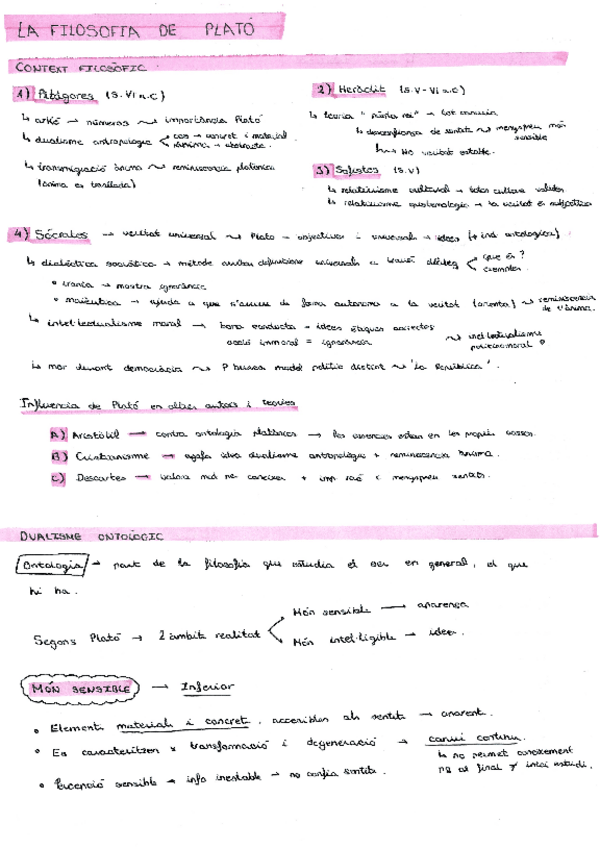 LA FILOSOFIA DE PLATÓ
CONTEXT FILOSÒFIC
1) Pitàgores (S. VI a.C)
↳ arkè → números ⤳ importància Plató
↳ dualisme antropològic < cos → concret i material
ànima → abstracte.
↳ transmigració ànima ⤳ reminiscència platònica
(ànima es trasllada)
2) Heràclit (S. V - VI a.C)
↳ teoria " → tot canvia
↳ desconfiança de sentits ⤳ menyspreu món
sensible
↳ No veritat estable.
3) Sofistes (S. V)
↳ relativisme cultural → totes cultures vàlides
↳ relativisme epistemològic → la veritat és subjectiva
4) Sòcrates → veritat universal ⤳ Plató = objectives i universals → idees (+ ind. ontològica)
↳ dialèctica socràtica → mètode definicions universals a través diàleg < què és ?
exemples
• ironia → mostra ignorància
• maièutica → ajuda a que s'arribi de forma autònoma a la veritat ⤳ reminiscència
de l'ànima.
↳ intel·lectualisme moral → bona conducta = idees ètiques correctes
acció immoral = ignorància
⤳ intel·lectualisme
↳ mor durant democràcia ⤳ P busca model polític diferent ⤳ "La República".
Influència de Plató en altres autors i teories
A) Aristòtil → contra ontologia platònica → les essències estan en les pròpies coses.
B) Cristianisme → agafa idea dualisme antropològic + reminiscència ànima.
C) Descartes → + imp raó i menyspreu sentits.
DUALISME ONTOLÒGIC
Ontologia → part de la filosofia que estudia el ser en general, el que
hi ha.
Segons Plató → 2 àmbits realitat < Món sensible → aparença
Món intel·ligible → idees.
MÓN SENSIBLE → Inferior
• Elements materials i concrets, accessibles als sentits → aparent.
• Es caracteritzen x transformació i degeneració → canvi continu.
↳ no permet coneixement
• Percepció sensible → info inestable → no confia sentits.